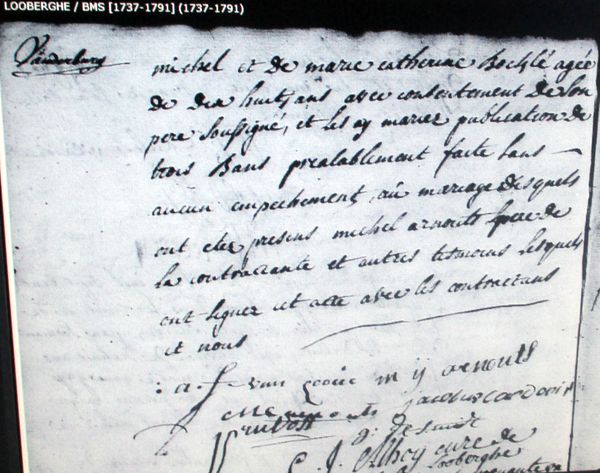 LOOBERGHE / BMS [1737-1791] (1737-1791)
Vanderburg
michel et de marie catherine agée
de dix huit ans avec consentement de son
pere soussigné, et les ay mariez publication de
trois Bans prealablement faite sans
aucun empechement, au mariage desquels
ont eter presens michel arnouts frere de
la contractante et autres tesmoins lesquels
ont signer cet acte avec les contractans
et nous
: a. f. van m ij arnouts
arnouts
j. desmidt
C. J. curé de
Looberghe